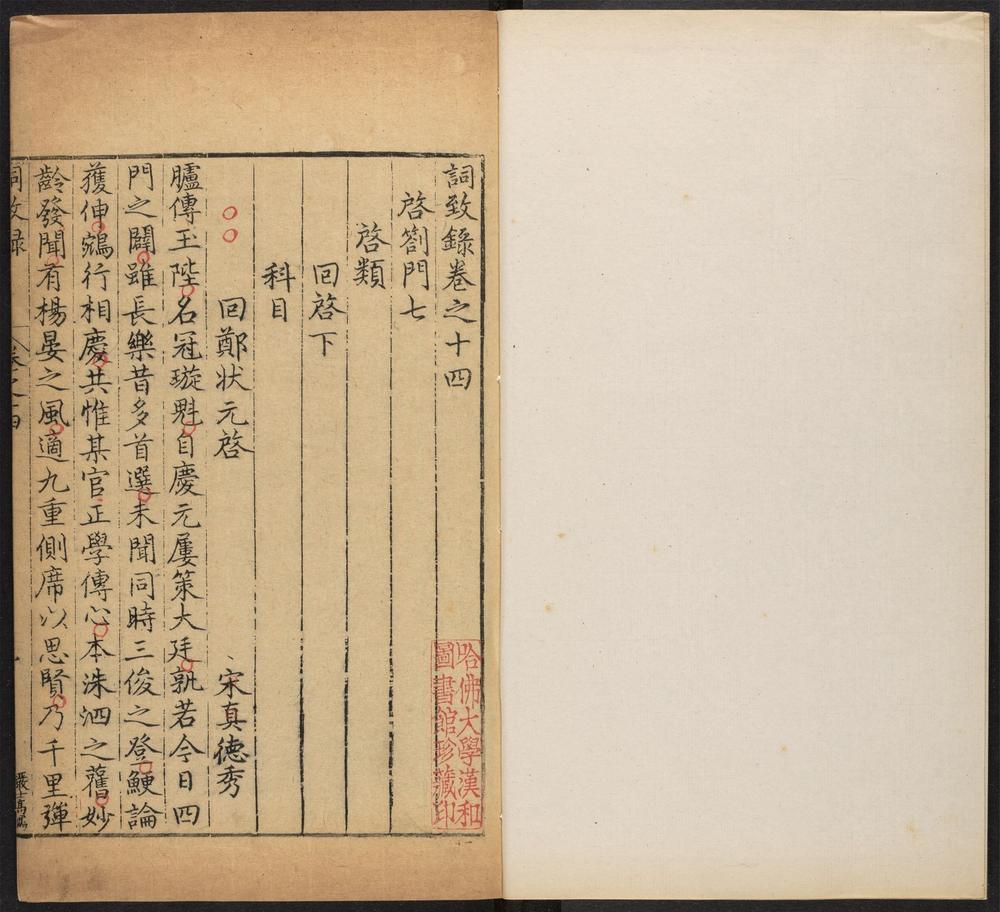 詞致録卷之十四
啓劄門七
啓類
囘啓下
科目
囘鄭狀元啓 宋真德秀
臚傳玉陛名冠璇魁自慶元屢策大廷孰若今日四
門之闢雖長樂昔多首選未聞同時三俊之登鯁論
獲伸鵷行相慶共惟某官正學傳心本洙泗之舊妙
齡發聞有楊晏之風適九重側席以思賢乃千里彈
詞致録
卷之十四
一
哈佛大學漢和
圖書館珍藏印